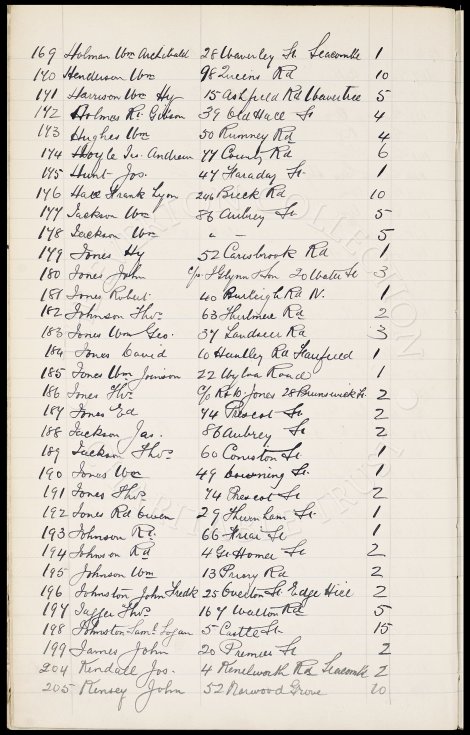 169 Holman Wm Archibald 28 Waverley St Seacombe 1
170 Henderson Wm 98 Queens Rd 10
171 Harrison Wm Hy 15 Ashfield Rd Wavertree 5
172 Holmes Rt Gibson 39 Old Hall St 4
173 Hughes Wm 50 Rumney Rd 4
174 Hoyle Jas. Andrew 77 County Rd 6
175 Hunt Jos. 47 Faraday St. 1
176 Hall Frank Lyon 246 Breck Rd 10
177 Jackson Wm 36 Aubrey St 5
178 Jackson Wm " - 5
179 Jones Hy 52 Carisbrook Rd 1
180 Jones John c/o J Glynn & Son 20 Water St 3
181 Jones Robert 40 Burleigh Rd N. 1
182 Johnson Thos 63 Hurlmere Rd 2
183 Jones Wm Geo. 37 Landseer Rd 3
184 Jones David 10 Huntley Rd Fairfield 1
185 Jones Wm 22 Wylva Road 1
186 Jones Thos c/o R & W Jones 28 Brunswick St. 2
187 Jones Ed 74 Prescot St 2
188 Jackson Jas. 86 Aubrey St 2
189 Jackson Thos 60 Coniston St 1
190 Jones Wm 49 Downing St. 1
191 Jones Thos 74 Prescot St 2
192 Jones Rd Owen 29 Thurnham St. 1
193 Johnson Rt. 66 Friar St 1
194 Johnson Rd 4 Gt Homer St 2
195 Johnson Wm 13 Priory Rd 2
196 Johnston John Fredk 25 Overton St Edge Hill 2
197 Jagger Thos 167 Walton Rd 5
198 Johnston Saml Logan 5 Castle St. 15
199 James John 20 Premier St 2
204 Kendall Jos. 4 Kenelworth Rd Seacombe 2
205 Kensey John 52 Norwood Grove 10